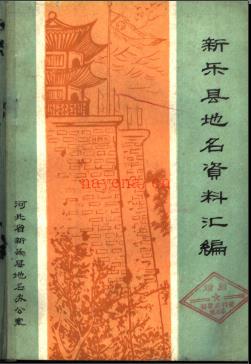 新乐县地名資料汇编
河北省新乐县地名办公室
nayona.cn